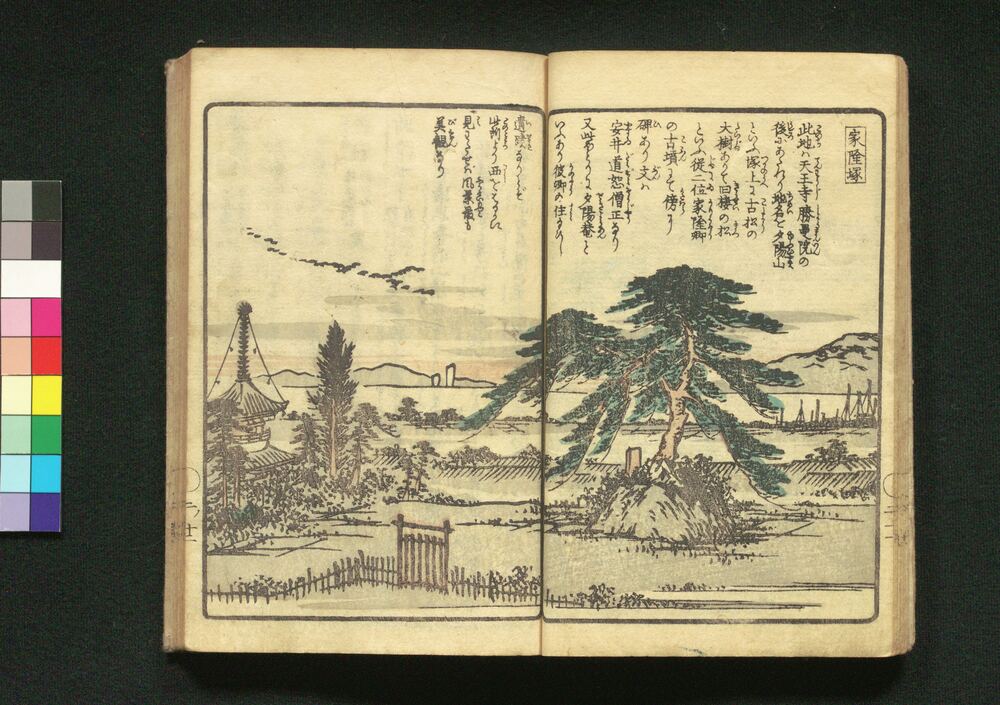 家隆塚
此地ハ天王寺勝曼院の
後にあたれり地名を夕陽山
といふ塚上に古松の
大樹ありて回様の松
といふ従二位家隆卿
の古墳にて傍に
碑あり文ハ
安井道恕僧正なり
又此辺りに夕陽菴と
いふあり彼卿の住
遺跡なりとぞ
此所より西をはるかに
見わたせバ風景最も
美観なり